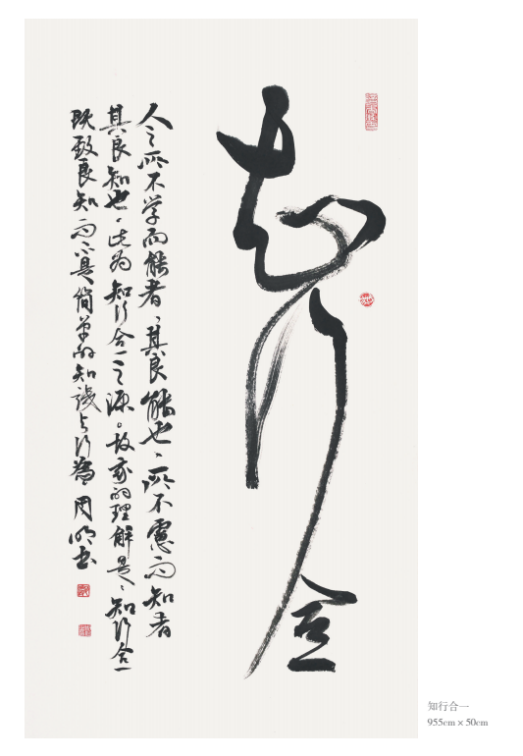 知行合一
人之所不学而能者，其良能也，所不慮而知者
其良知也，此为知行合一之源。故我的理解是，知行合一
既致良知而不是簡单的知識与行為。周明书
知行合一
955cm × 50cm